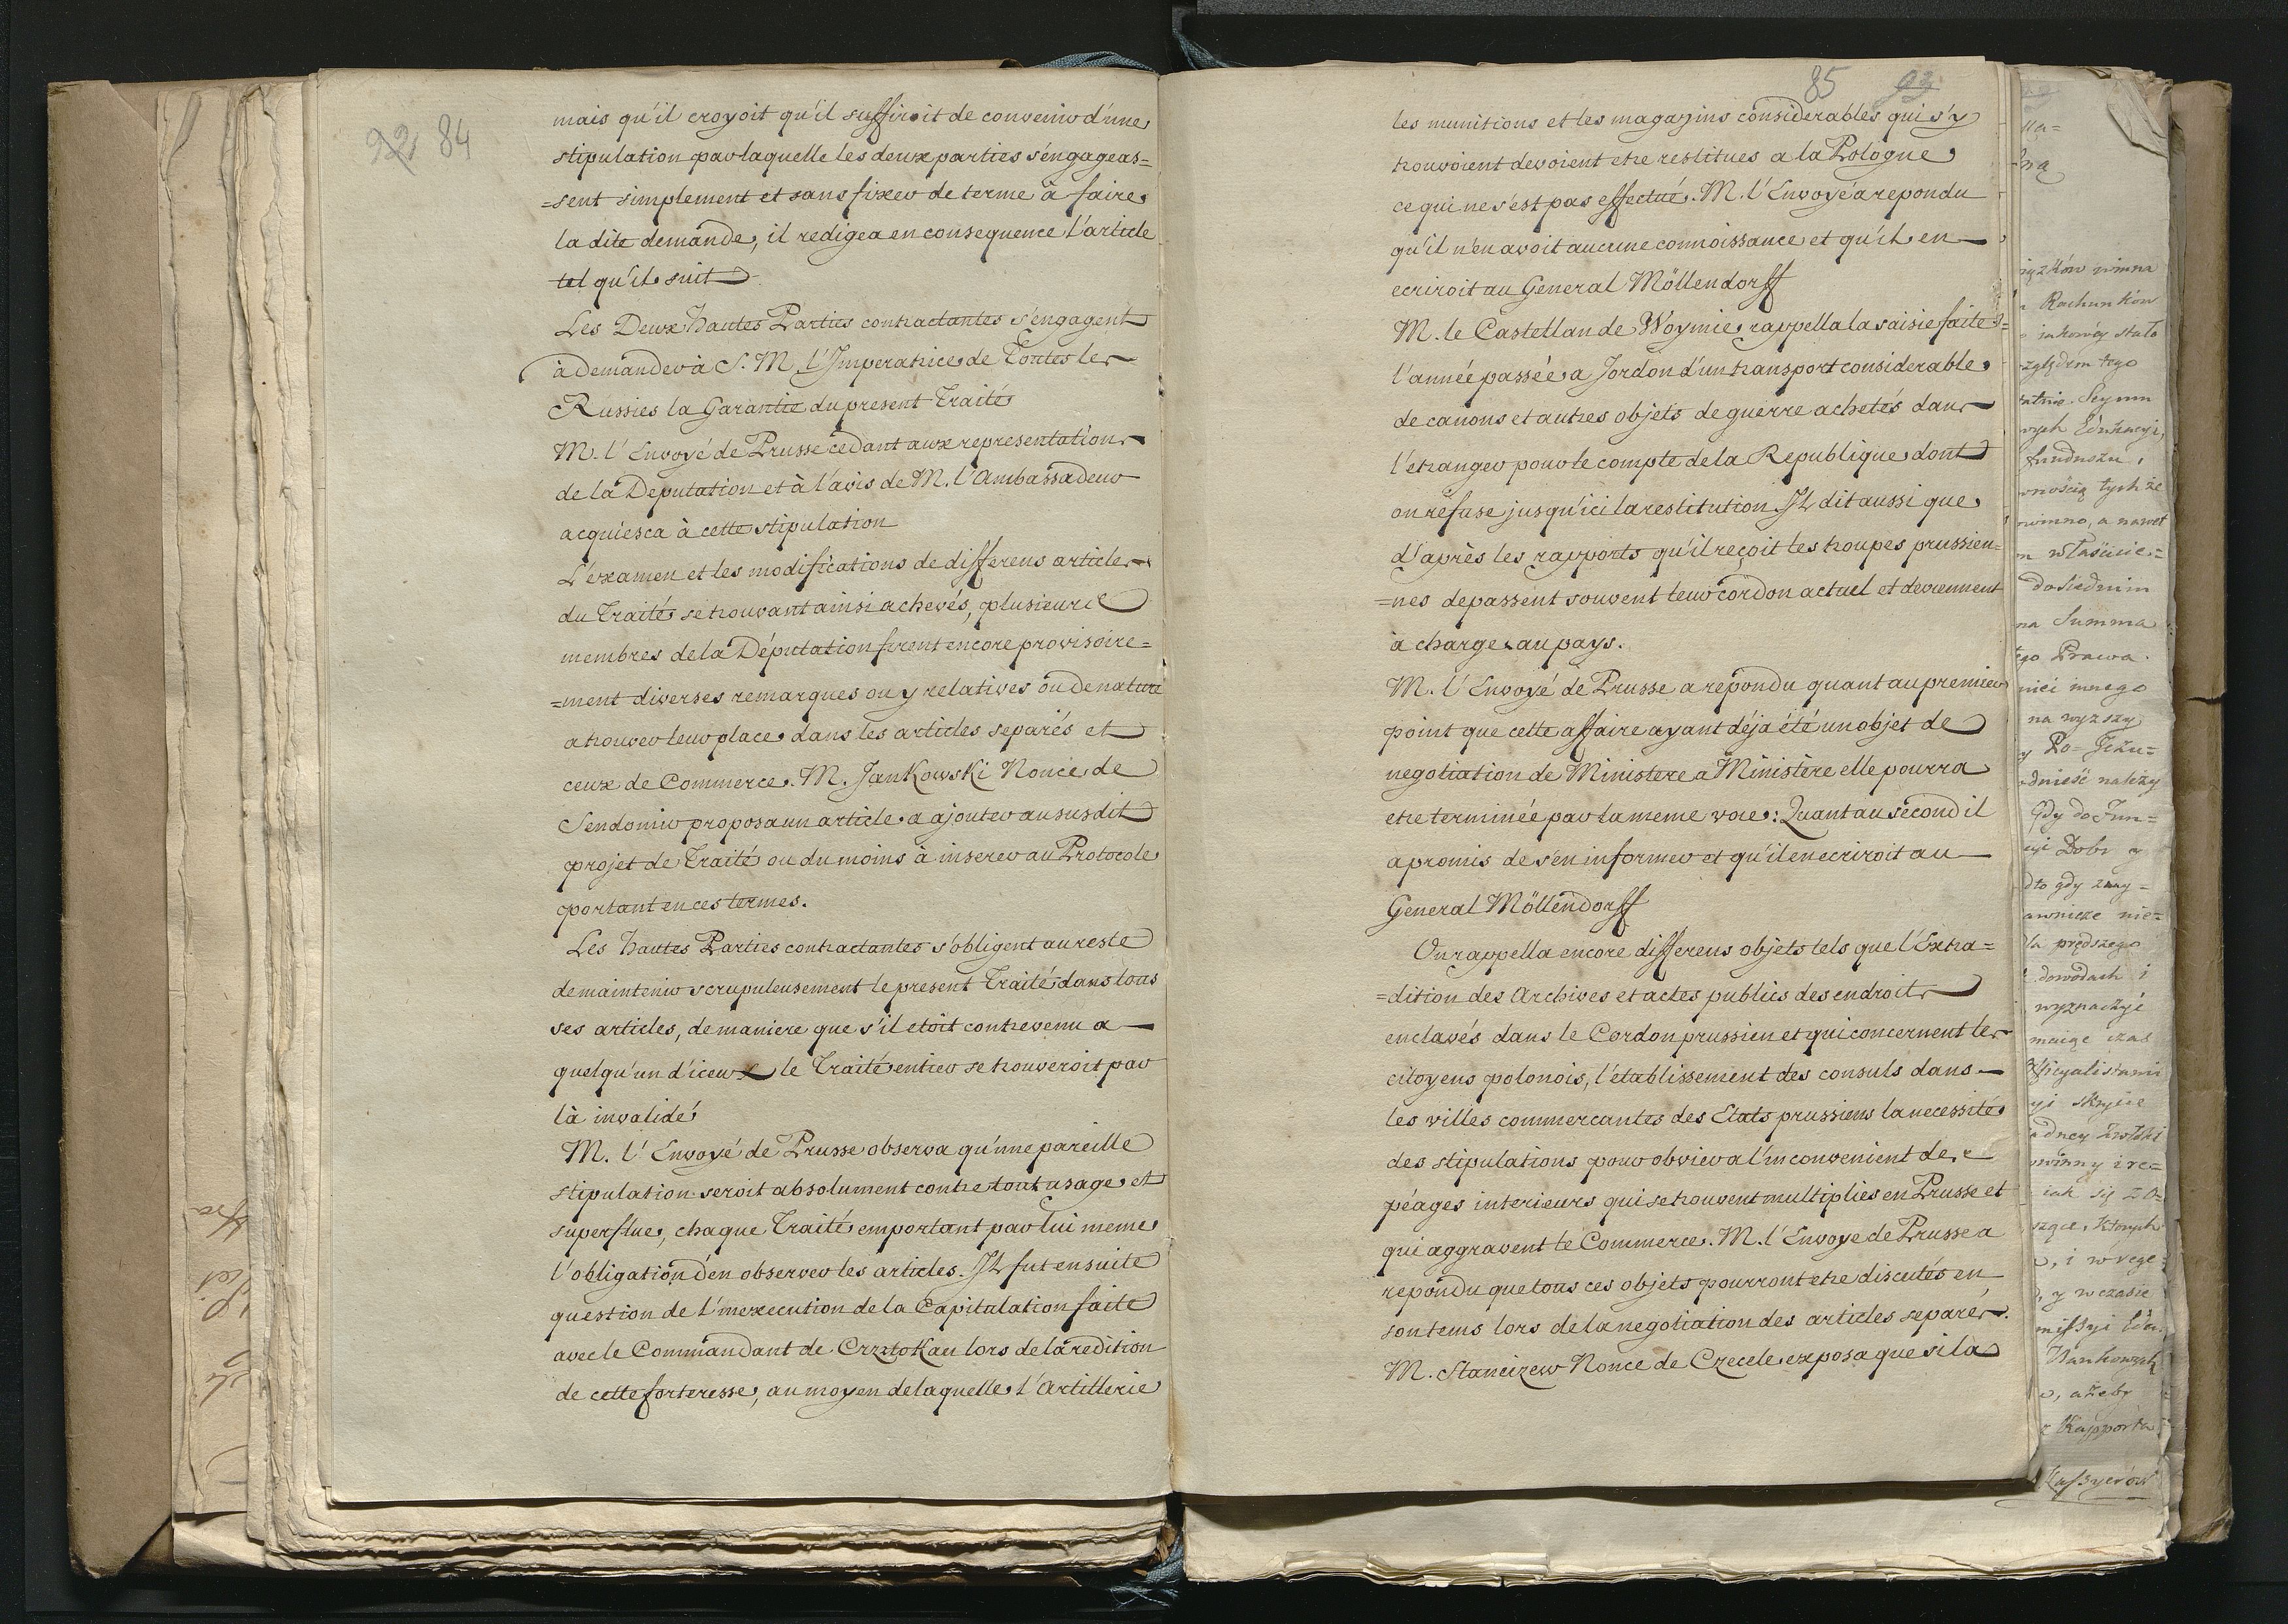 92 84
mais qu'il croyoit qu'il suffiroit de convenir d'une
stipulation par laquelle les deux parties s'engageas=
=sent simplement et sans fixer de terme à faire
la dite demande, il redigea en consequence l'article
tel qu'il suit
Les Deux hautes Parties contractantes s'engagent
à demander à S. M. l'Imperatrice de Toutes les
Russies la Garantie du present Traité
M. l'Envoyé de Prusse cedant aux representations
de la Deputation et à l'avis de M. l'Ambassadeur
acquiesca à cette stipulation
L'examen et les modifications de differens articles
du Traité se trouvant ainsi achevés, plusieurs
membres de la Députation firent encore provisoire=
=ment diverses remarques ou y relatives ou de nature
a trouver leur place dans les articles separés et
ceux de Commerce. M. Jankowski Nonce de
Sendomir proposa un article a ajouter au susdit
projet de Traité ou du moins à inserer au Protocole
portant en ces termes.
Les hautes Parties contractantes s'obligent au reste
de maintenir scrupuleusement le present Traité dans tous
ses articles, de maniere que s'il etoit contrevenu a
quelqu'un d'iceux le Traité entier se trouveroit par
là invalidé
M. l'Envoyé de Prusse observa qu'une pareille
stipulation seroit absolument contre tout usage et
superflue, chaque Traité emportant par lui meme
l'obligation d'en observer les articles. Il fut ensuite
question de l'inexecution de la Capitulation faite
avec le Commandant de Crzstokau lors de la redition
de cette forteresse, au moyen de laquelle l'Artillerie
85 93
les munitions et les magazins considerables qui s'y
trouvoient devoient etre restitues a la Pologne
ce qui ne s'est pas effectué. M. l'Envoyé a repondu
qu'il n'en avoit aucune connoissance et qu'il en
ecriroit au General Möllendorff
M. le Castellan de Woynnie rappella la saisie faite
l'année passée a Jordon d'un transport considerable
de canons et autres objets de guerre achetés dans
l'etranger pour le compte de la Republique dont
on refuse jusqu'ici la restitution Il dit aussi que
d'après les rapports qu'il reçoit les troupes prussien=
=nes depassent souvent leur cordon actuel et deviennent
à charge au pays.
M. l'Envoyé de Prusse a repondu quant au premier
point que cette affaire ayant déja été un objet de
negotiation de Ministere a Ministère elle pourra
etre terminée par la meme voie: Quant au second il
a promis de s'en informer et qu'il en ecriroit au
General Möllendorff
On rappella encore differens objets tels que l'Extra=
=dition des Archives et actes publics des endroits
enclavés dans le Cordon prussien et qui concernent les
citoyens polonois, l'etablissement des consuls dans
les villes commercantes des Etats prussiens la necessité
des stipulations pour obvier a l'inconvenient des
péages interieurs qui se trouvent multipliés en Prusse et
qui aggravent le Commerce. M. l'Envoye de Prusse a
repondu que tous ces objets pourront etre discutés en
son tems lors de la negotiation des articles separés.
M. Stancizew Nonce de Crecele exposa que si la
Rachunków
tego
Seymu
Funduszu,
tychże
a nawet
Summa
Prawa.
innego
na wyzszy
należy
Gdy do Fun=
Dobr
gdy
prędszego
dowodach i
czas
iak się
y w czasie